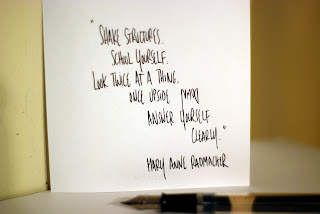 "SHAKE STRUCTURES.
SCHOOL YOURSELF.
LOOK TWICE AT A THING.
ONCE UPSIDE
ANSWER YOURSELF
CLEARLY."
MARY ANNE RADMACHER